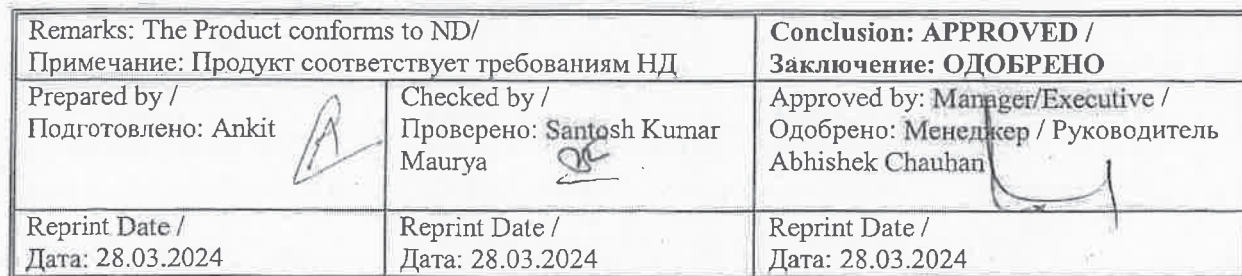 Remarks: The Product conforms to ND/
Примечание: Продукт соответствует требованиям НД
Conclusion: APPROVED /
Заключение: ОДОБРЕНО
Prepared by /
Подготовлено: Ankit
Checked by /
Проверено: Santosh Kumar
Maurya
Approved by: Manager/Executive /
Одобрено: Менеджер / Руководитель
Abhishek Chauhan
Reprint Date /
Дата: 28.03.2024
Reprint Date /
Дата: 28.03.2024
Reprint Date /
Дата: 28.03.2024